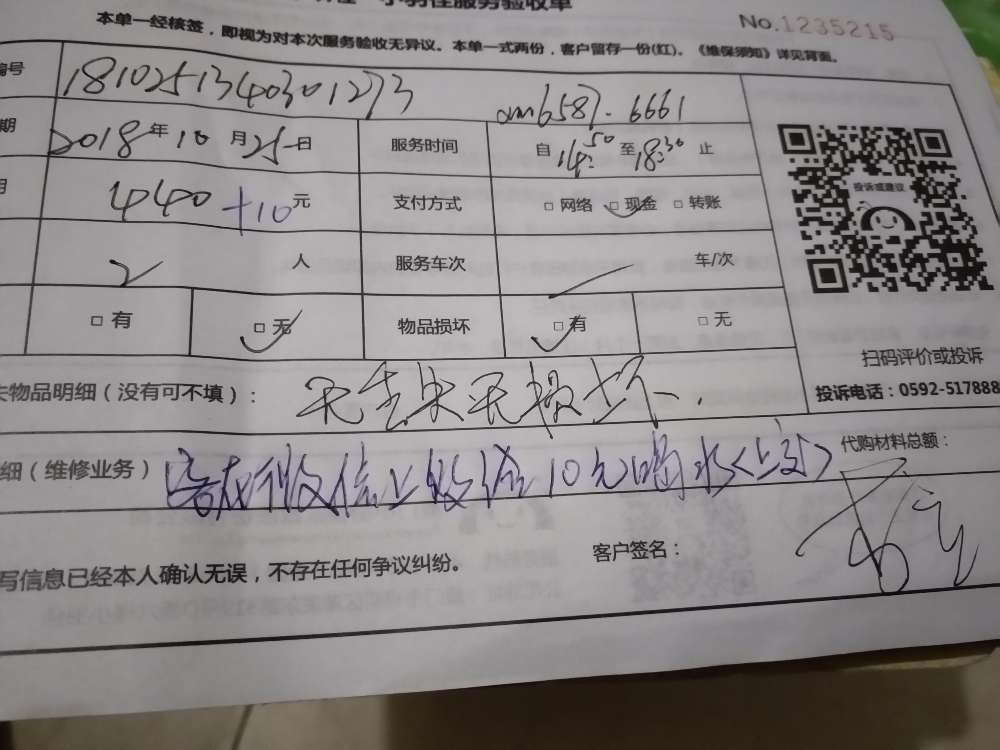 服务验收单
No.1235215
本单一经核签，即视为对本次服务验收无异议。本单一式两份，客户留存一份(红)。《维保须知》详见背面。
编号 18102513403012 6587-6661
期 2018年10月25日 服务时间 自14:50至18:30止
440+10元 支付方式 □网络 □现金 □转账
2人 服务车次 车/次
□有 □无 物品损坏 □有 □无
投诉或建议
扫码评价或投诉
投诉电话：0592-517888
物品明细（没有可不填）： 无丢失无损坏
细（维修业务） 客在微信上多 10元喝水<上交> 代购材料总额：
写信息已经本人确认无误，不存在任何争议纠纷。 客户签名：